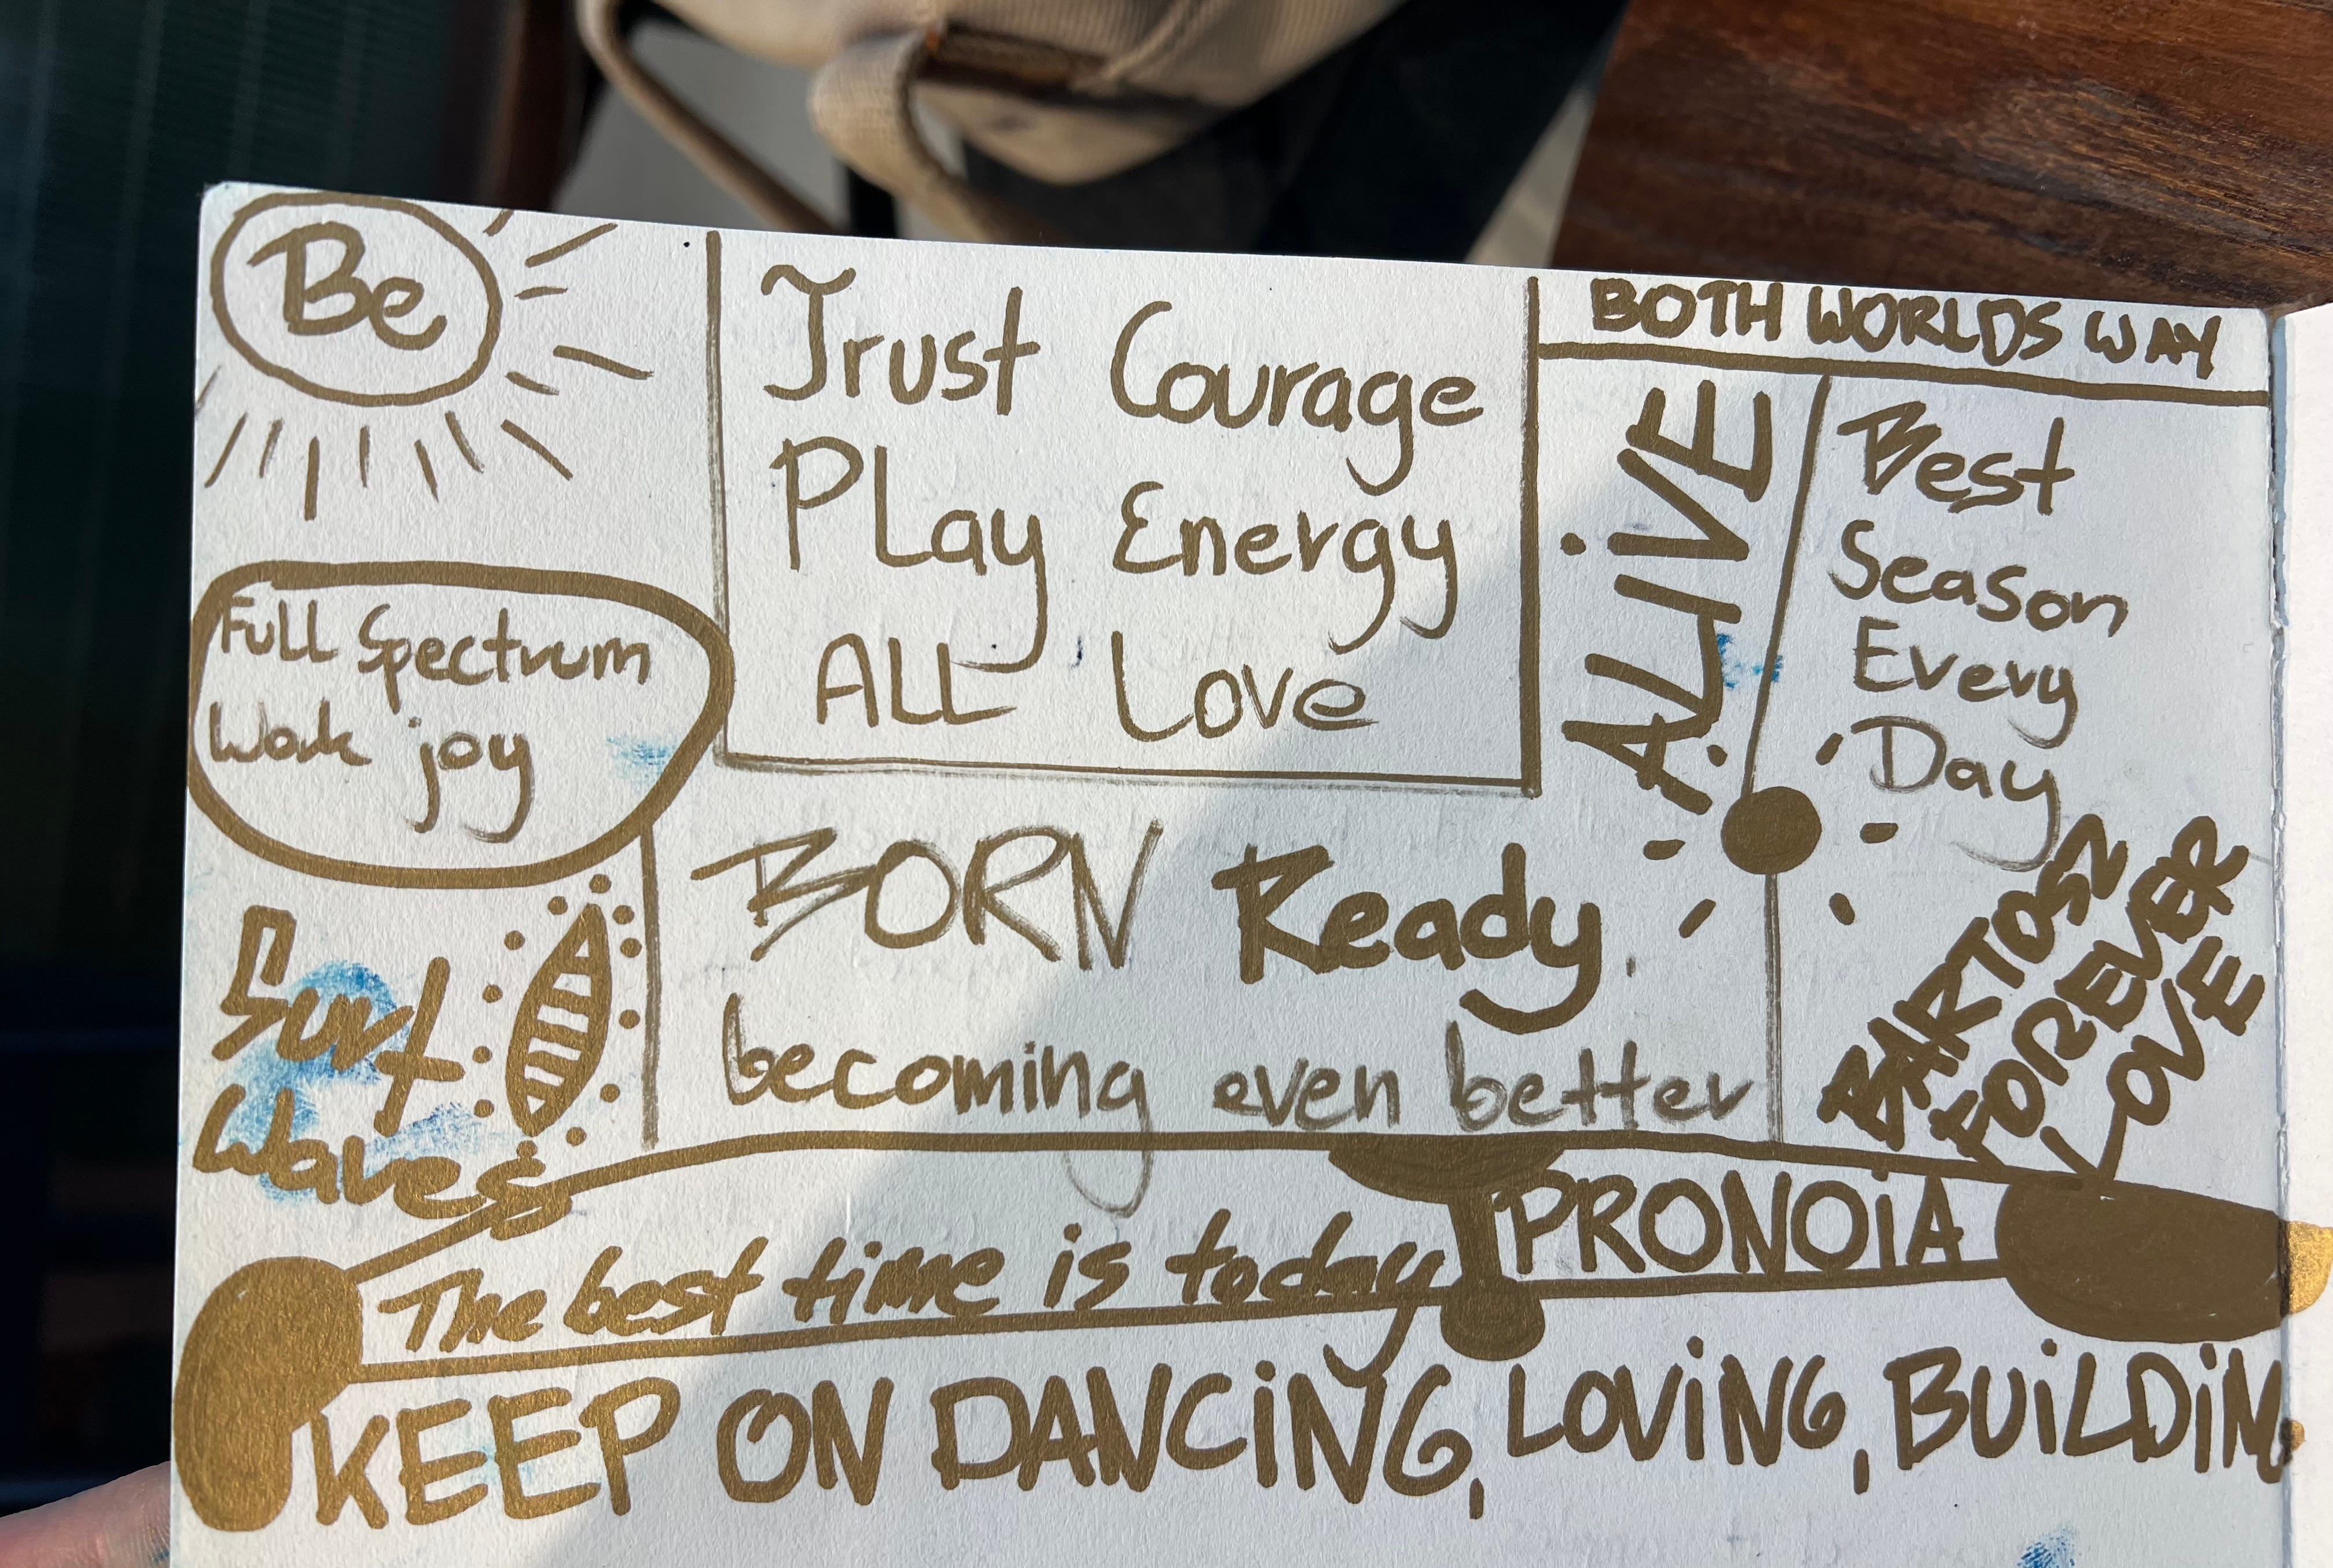 Be
Trust Courage
PLay Energy
ALL Love
BOTH WORLDS WAY
ALiVE
Best
Season
Every
Day
Full Spectrum
Work joy
BORN Ready
becoming even better
Surf
Waves
BARTOSZ
FOREVER
LOVE
The best time is today
PRONOiA
KEEP ON DANCiNG, LOViNG, BUiLDiNG